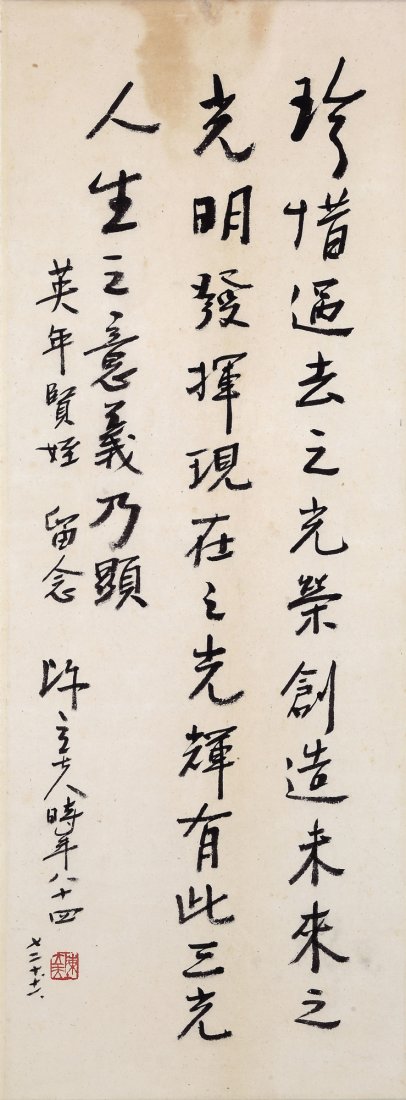 珍惜過去之光榮創造未來之
光明發揮現在之光輝有此三光
人生之意義乃顯
英年賢姪 留念 陳立夫時年八十四
七二